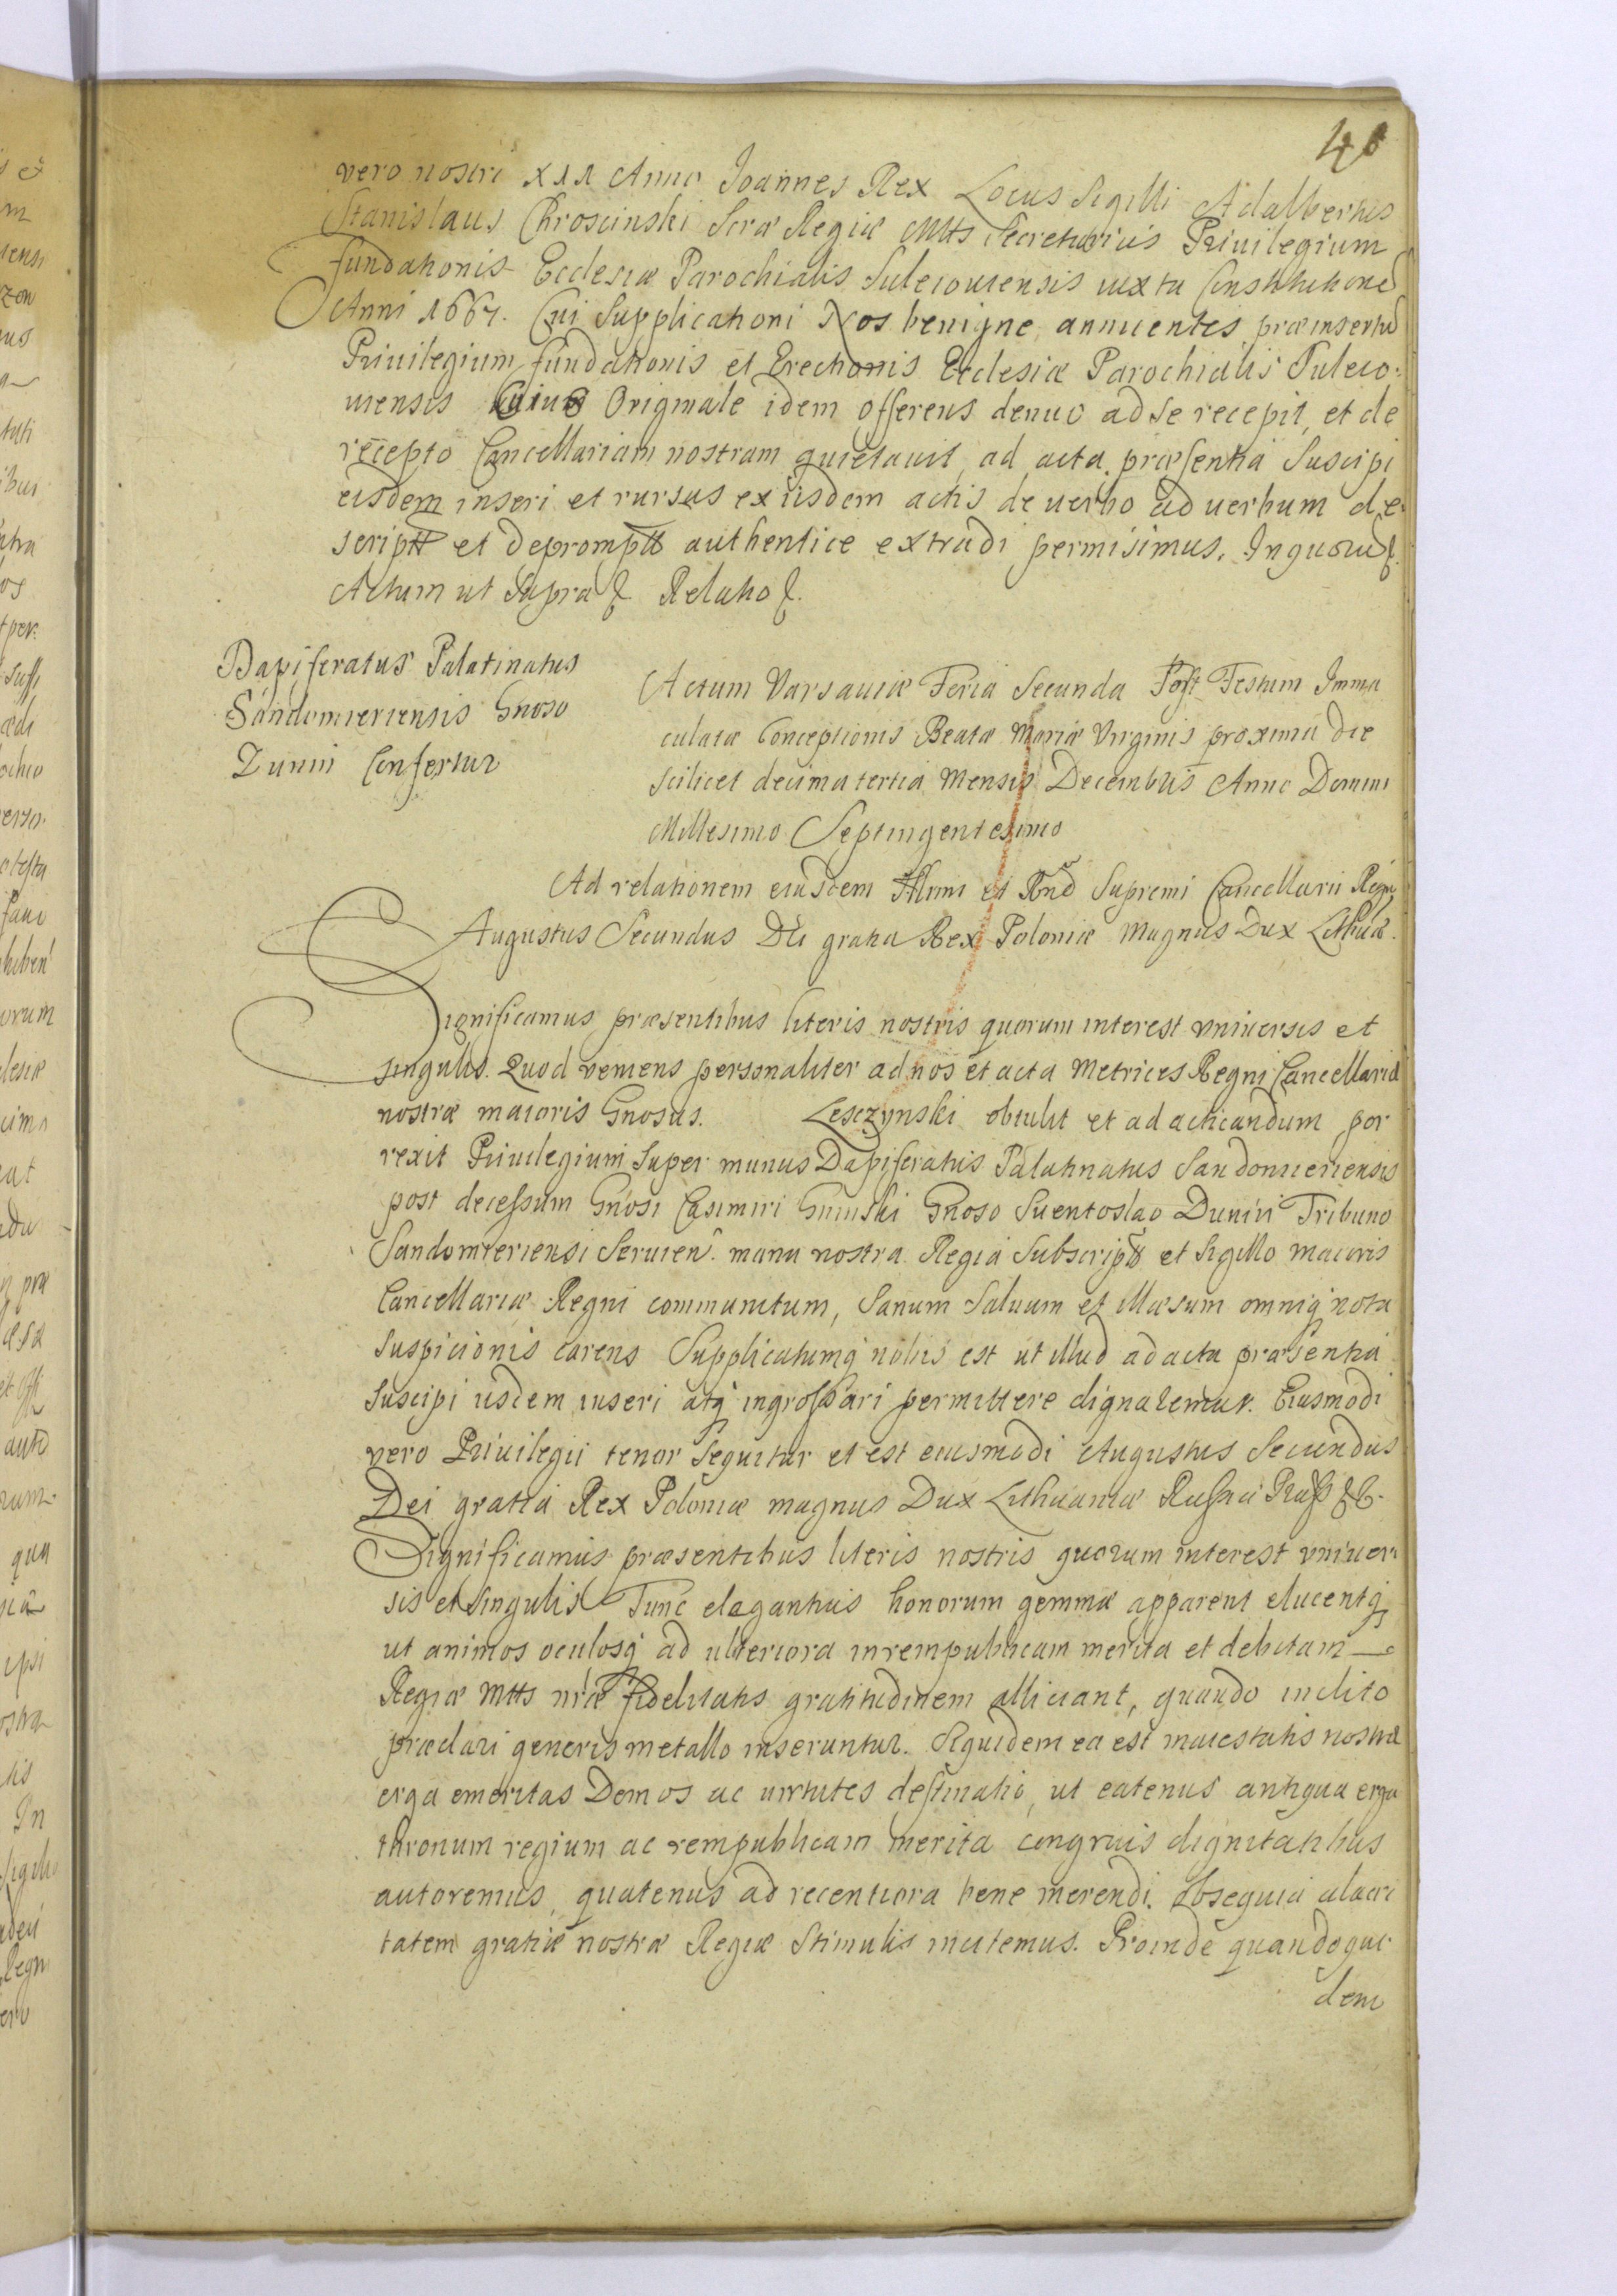 40
vero nostri XII Anno Joannes Rex Locus Sigilli Adalbertus
Stanislaus Chroscinski Scræ Regiæ Mttis Secretarius Priuilegium
fundationis Ecclesiæ Parochialis Suleiouiensis iuxta Constitutione
Anni 1667. Cui Supplicationi Nos benigne annuentes præinsertu
Priuilegium fundationis et Erectionis Ecclesiæ Parochialis Suleio-
uiensis Cuius Originale idem offerens denuo ad se recepit, et de
recepto Cancellariam nostram quietauit, ad acta præsentia Suscipi
eisdem inseri et rursus ex iisdem actis de uerbo ad uerbum de
script et deprompt authentice extradi permisimus. In quoru
Actum ut Supra Relatio
Dapiferatus Palatinatus
Sandomieriensis Gnoso
Dunin Confertur
Actum Varsauiæ Feria Secunda Post Festum Imma
culatæ Conceptionis Beatæ Mariæ Virginis proxima die
scilicet decima tertia Mensis Decembris Anno Domini
Millesimo Septingentesimo
Ad relationem eiusdem Illmi et Rnd Supremi Cancellarii Regni
Augustus Secundus Dei gratia Rex Poloniæ Magnus Dux Lithuæ.
Significamus præsentibus literis nostris quorum interest vniuersis et
singulis. Quod veniens personaliter ad nos et acta Metrices Regni Cancellariæ
nostræ maioris Gnosus. Lesczynski obtulit et ad acticandum por
rexit Priuilegium Super munus Dapiferatus Palatinatus Sandomieriensis
post decessum Gnosi Casimiri Gninski Gnoso Suentoslao Dunin Tribuno
Sandomieriensi Seruien. manu nostra Regia Subscript et Sigillo maioris
Cancellariæ Regni communitum, Sanum Saluum et illæsum omniq nota
Suspicionis carens Supplicatumq nobis est ut illud ad acta præsentia
Suscipi iisdem inseri atq ingrossari permittere dignaremur. Eiusmodi
vero Priuilegii tenor Sequitur et est eiusmodi Augustus Secundus
Dei gratia Rex Poloniæ magnus Dux Lithuaniæ Russiæ Pruss
Significamus præsentibus literis nostris quorum interest vniuer
sis et Singulis Tunc elegantius honorum gemmæ apparent elucentq
ut animos oculosq ad ulteriora in rempublicam merita et debitam
Regiæ Mttis nræ fidelitatis gratitudinem alliciant, quando inclito
præclari generis metallo inseruntur. Siquidem ea est maiestatis nostræ
erga emeritas Domos ac uirtutes destinatio, ut eatenus antiqua erga
thronum regium ac rempublicam merita congruis dignitatibus
autoremus, quatenus ad recentiora bene merendi. Obsequia alacri
tatem gratiæ nostræ Regiæ Stimulis incitemus. Proinde quandoqui
dem